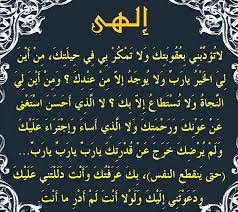 إلهي
لاتؤدبني بعقوبتك ولا تمكر بي في حيلتك، من أين
لي الخير يارب ولا يوجد إلا من عندك ؟ ومن أين لي
النجاة ولا تستطاع إلا بك ؟ لا الذي أحسن استغنى
عن عونك ورحمتك ولا الذي أساء واجتراء عليك
ولم يرضك خرج عن قدرتك يارب يارب يارب...
(حتى ينقطع النفس)، بك عرفتك وأنت دللتني عليك
ودعوتني إليك ولولا أنت لم أدر ما أنت.